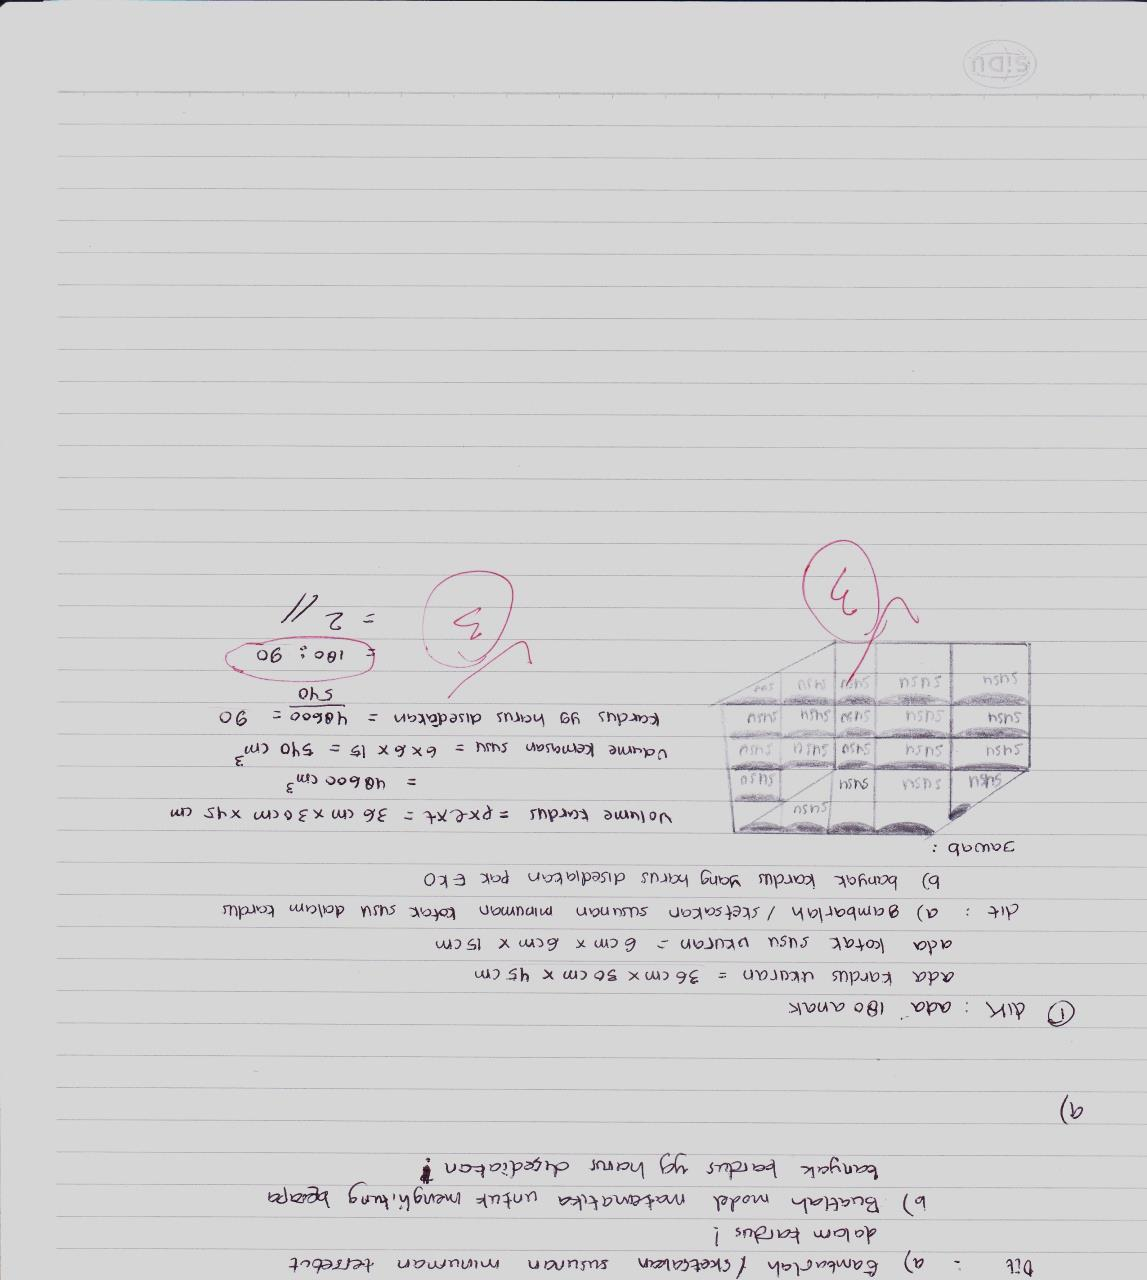 Dit : a) Gambarlah / sketsakan susunan minuman tersebut
dalam kardus !
b) Buatlah model matematika untuk menghitung berapa
banyak kardus yg harus disediakan !
a)
① dik : ada 180 anak
ada kardus ukuran = 36 cm x 30 cm x 45 cm
ada kotak susu ukuran = 6cm x 6cm x 15cm
dit : a) gambarlah / sketsakan susunan minuman kotak susu dalam kardus
b) banyak kardus yang harus disediakan pak Eko
Jawab :
susu
susu susu susu susu
susu susu susu susu susu
susu susu susu susu susu
susu susu susu susu susu
3
Volume kardus = pxlxt = 36 cm x 30 cm x 45 cm
= 48600 cm³
Volume kemasan susu = 6x6x15 = 540 cm³
kardus yg harus disediakan = 48600/540 = 90
= 180 : 90
= 2 //
3
SiDU